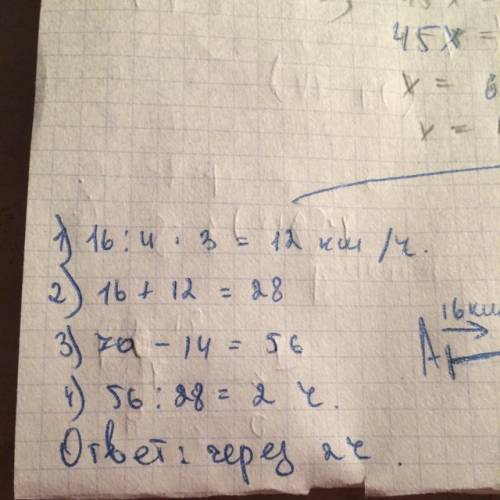 45x =
x = 6
x =
1) 16 : 4 · 3 = 12 км/ч.
2) 16 + 12 = 28
3) 70 - 14 = 56
4) 56 : 28 = 2 ч.
Ответ: через 2ч.
16 км
А